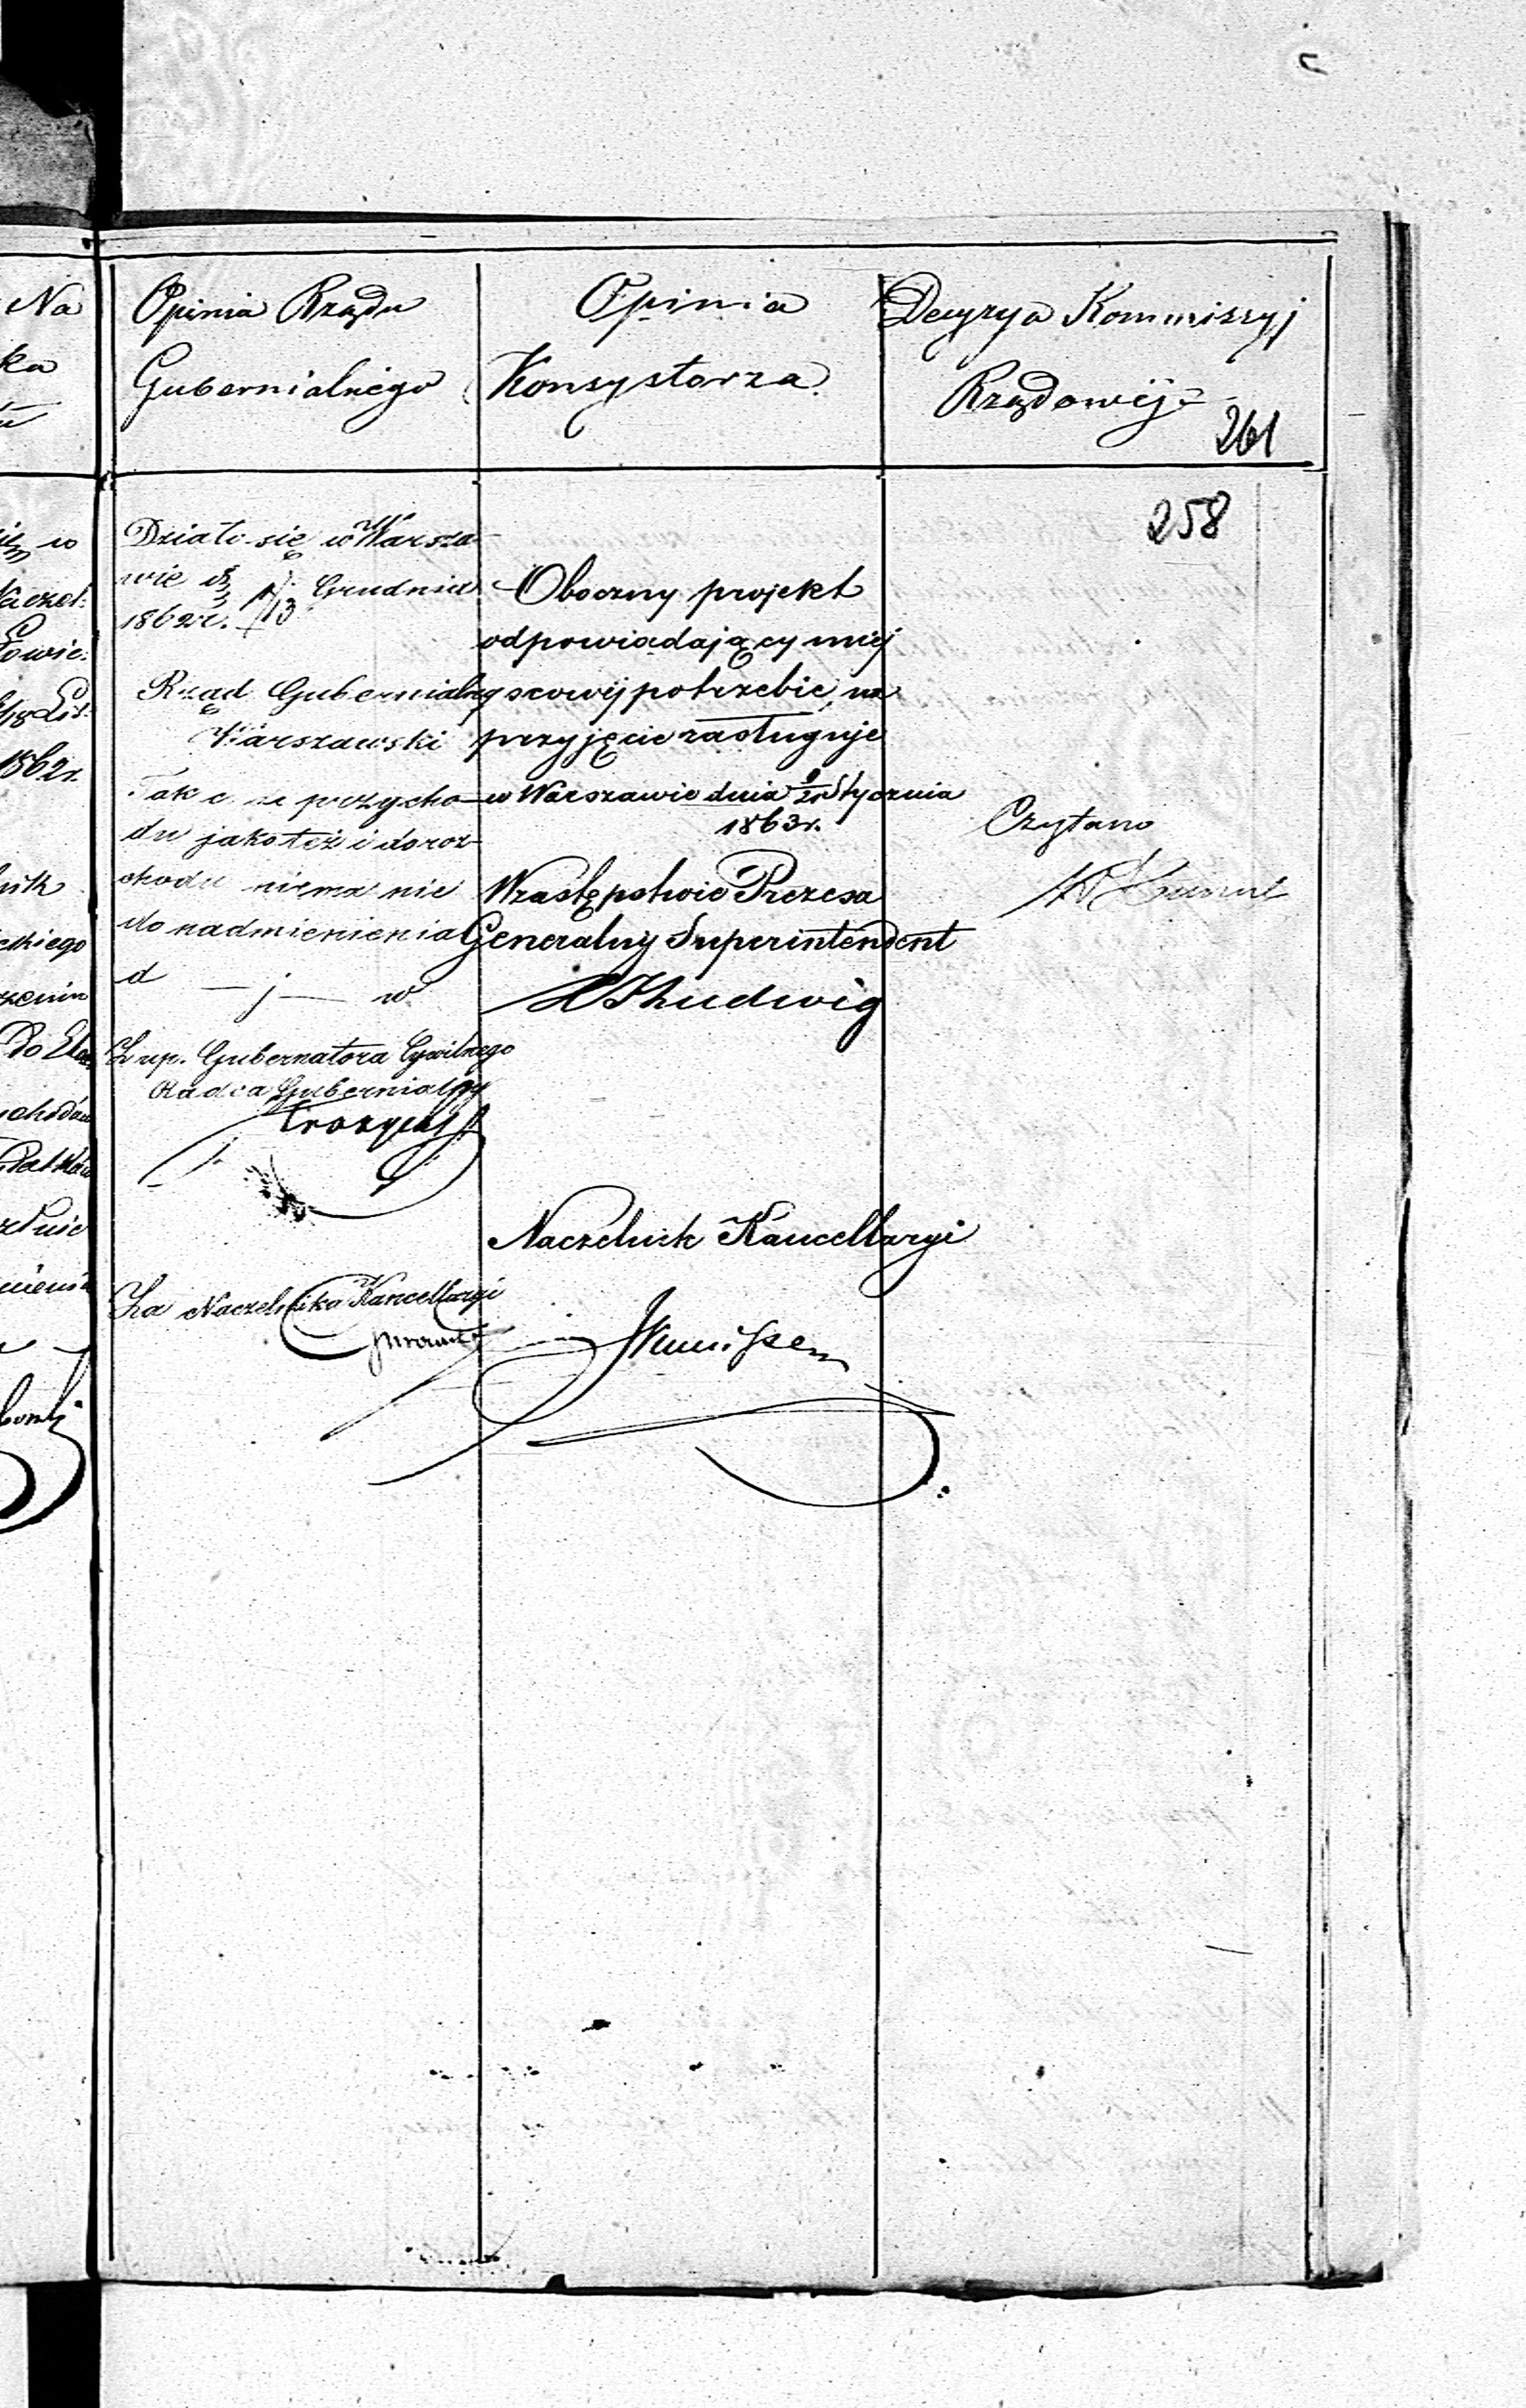 Na
ka
Opinia Rządu
Gubernialnego
Opinia
Konsystorza
Decyzya Kommissyj
Rządowéj
261
258
w
Naczel:
Łowic:
1862r.
Działo się w Warsza-
wie d. 1/13 Grudnia
1862r.
Rząd Gubernialny
Warszawski
Tak co do przycho-
du jakoteż i do roz-
chodu niema nic
do nadmienienia
d — j — w
Z up. Gubernatora Cywilnego
Radca Gubernialny
Za Naczelnika Kancellaryi
Oboczny projekt
odpowiadający miej
scowéj potrzebie, na
przyjęcie zasługuje
w Warszawie dnia 9/21 Stycznia
1863r.
W zastępstwie Prezesa
Generalny Superintendent
Ludwig
Naczelnik Kancellaryi
Czytano